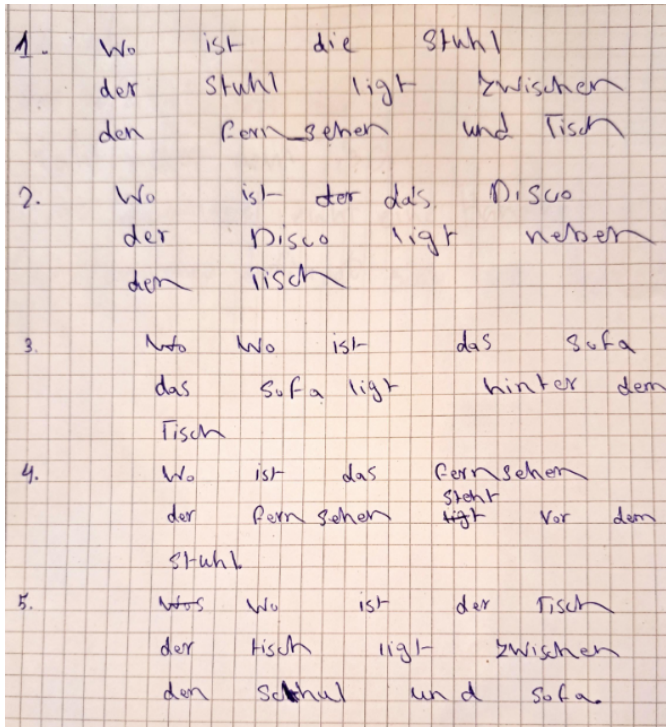 1. Wo ist die Stuhl
der Stuhl ligt zwischen
den fernsehen und Tisch
2. Wo ist der das Disco
der Disco ligt neben
dem Tisch
3. Wo Wo ist das Sofa
das Sofa ligt hinter dem
Tisch
4. Wo ist das fernsehen
steht
der fernsehen ligt vor dem
Stuhl.
5. Wos Wo ist der Tisch
der tisch ligt zwischen
den und Sofa.